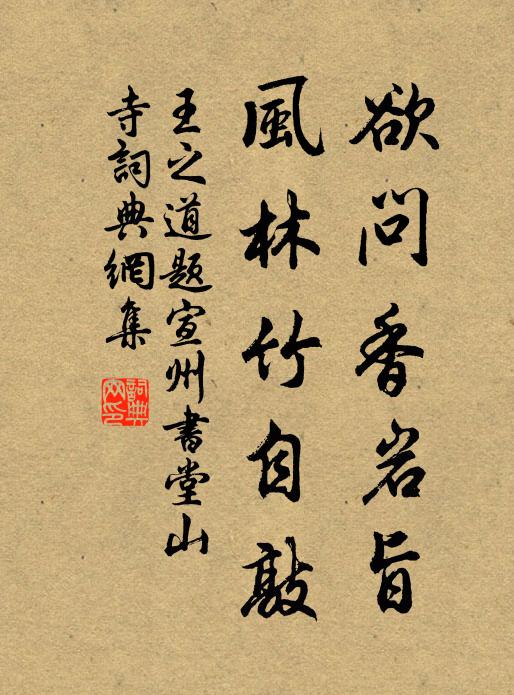 欲問香岩旨
風林竹自敲
王之道題宣州書堂山
寺詞典網集
詞典網印